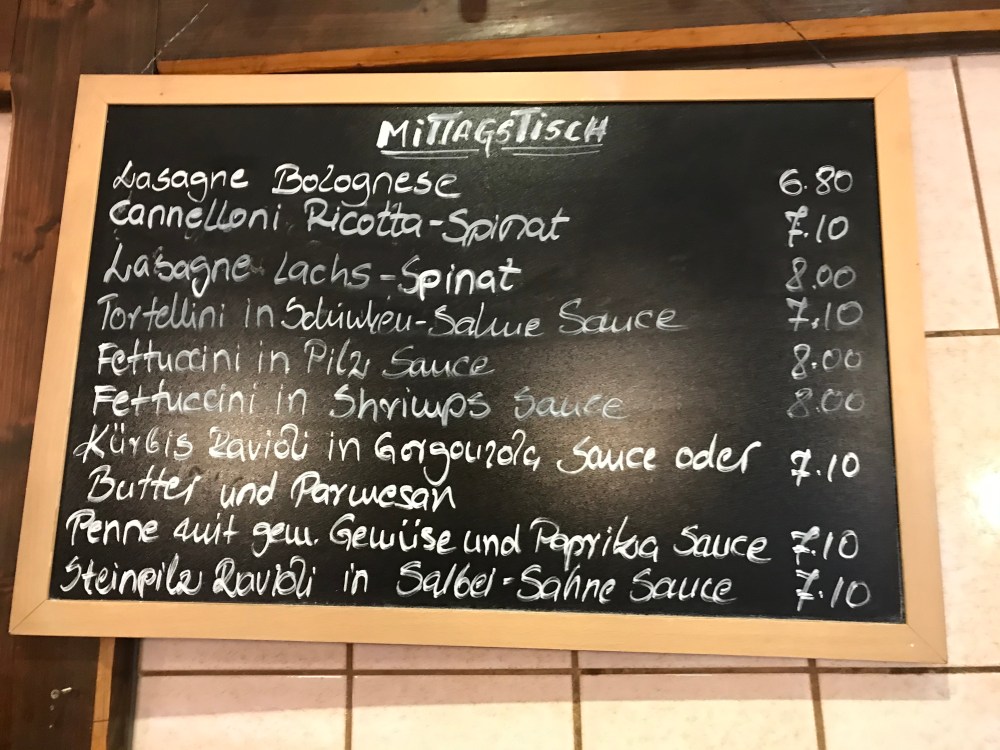 MITTAGSTISCH
Lasagne Bolognese 6.80
Cannelloni Ricotta-Spinat 7.10
Lasagne Lachs-Spinat 8.00
Tortellini in Schinken-Sahne Sauce 7.10
Fettuccini in Pilz Sauce 8.00
Fettuccini in Shrimps Sauce 8.00
Kürbis Ravioli in Gorgonzola Sauce oder 7.10
Butter und Parmesan
Penne mit gem. Gemüse und Paprika Sauce 7.10
Steinpilz Ravioli in Salbei-Sahne Sauce 7.10